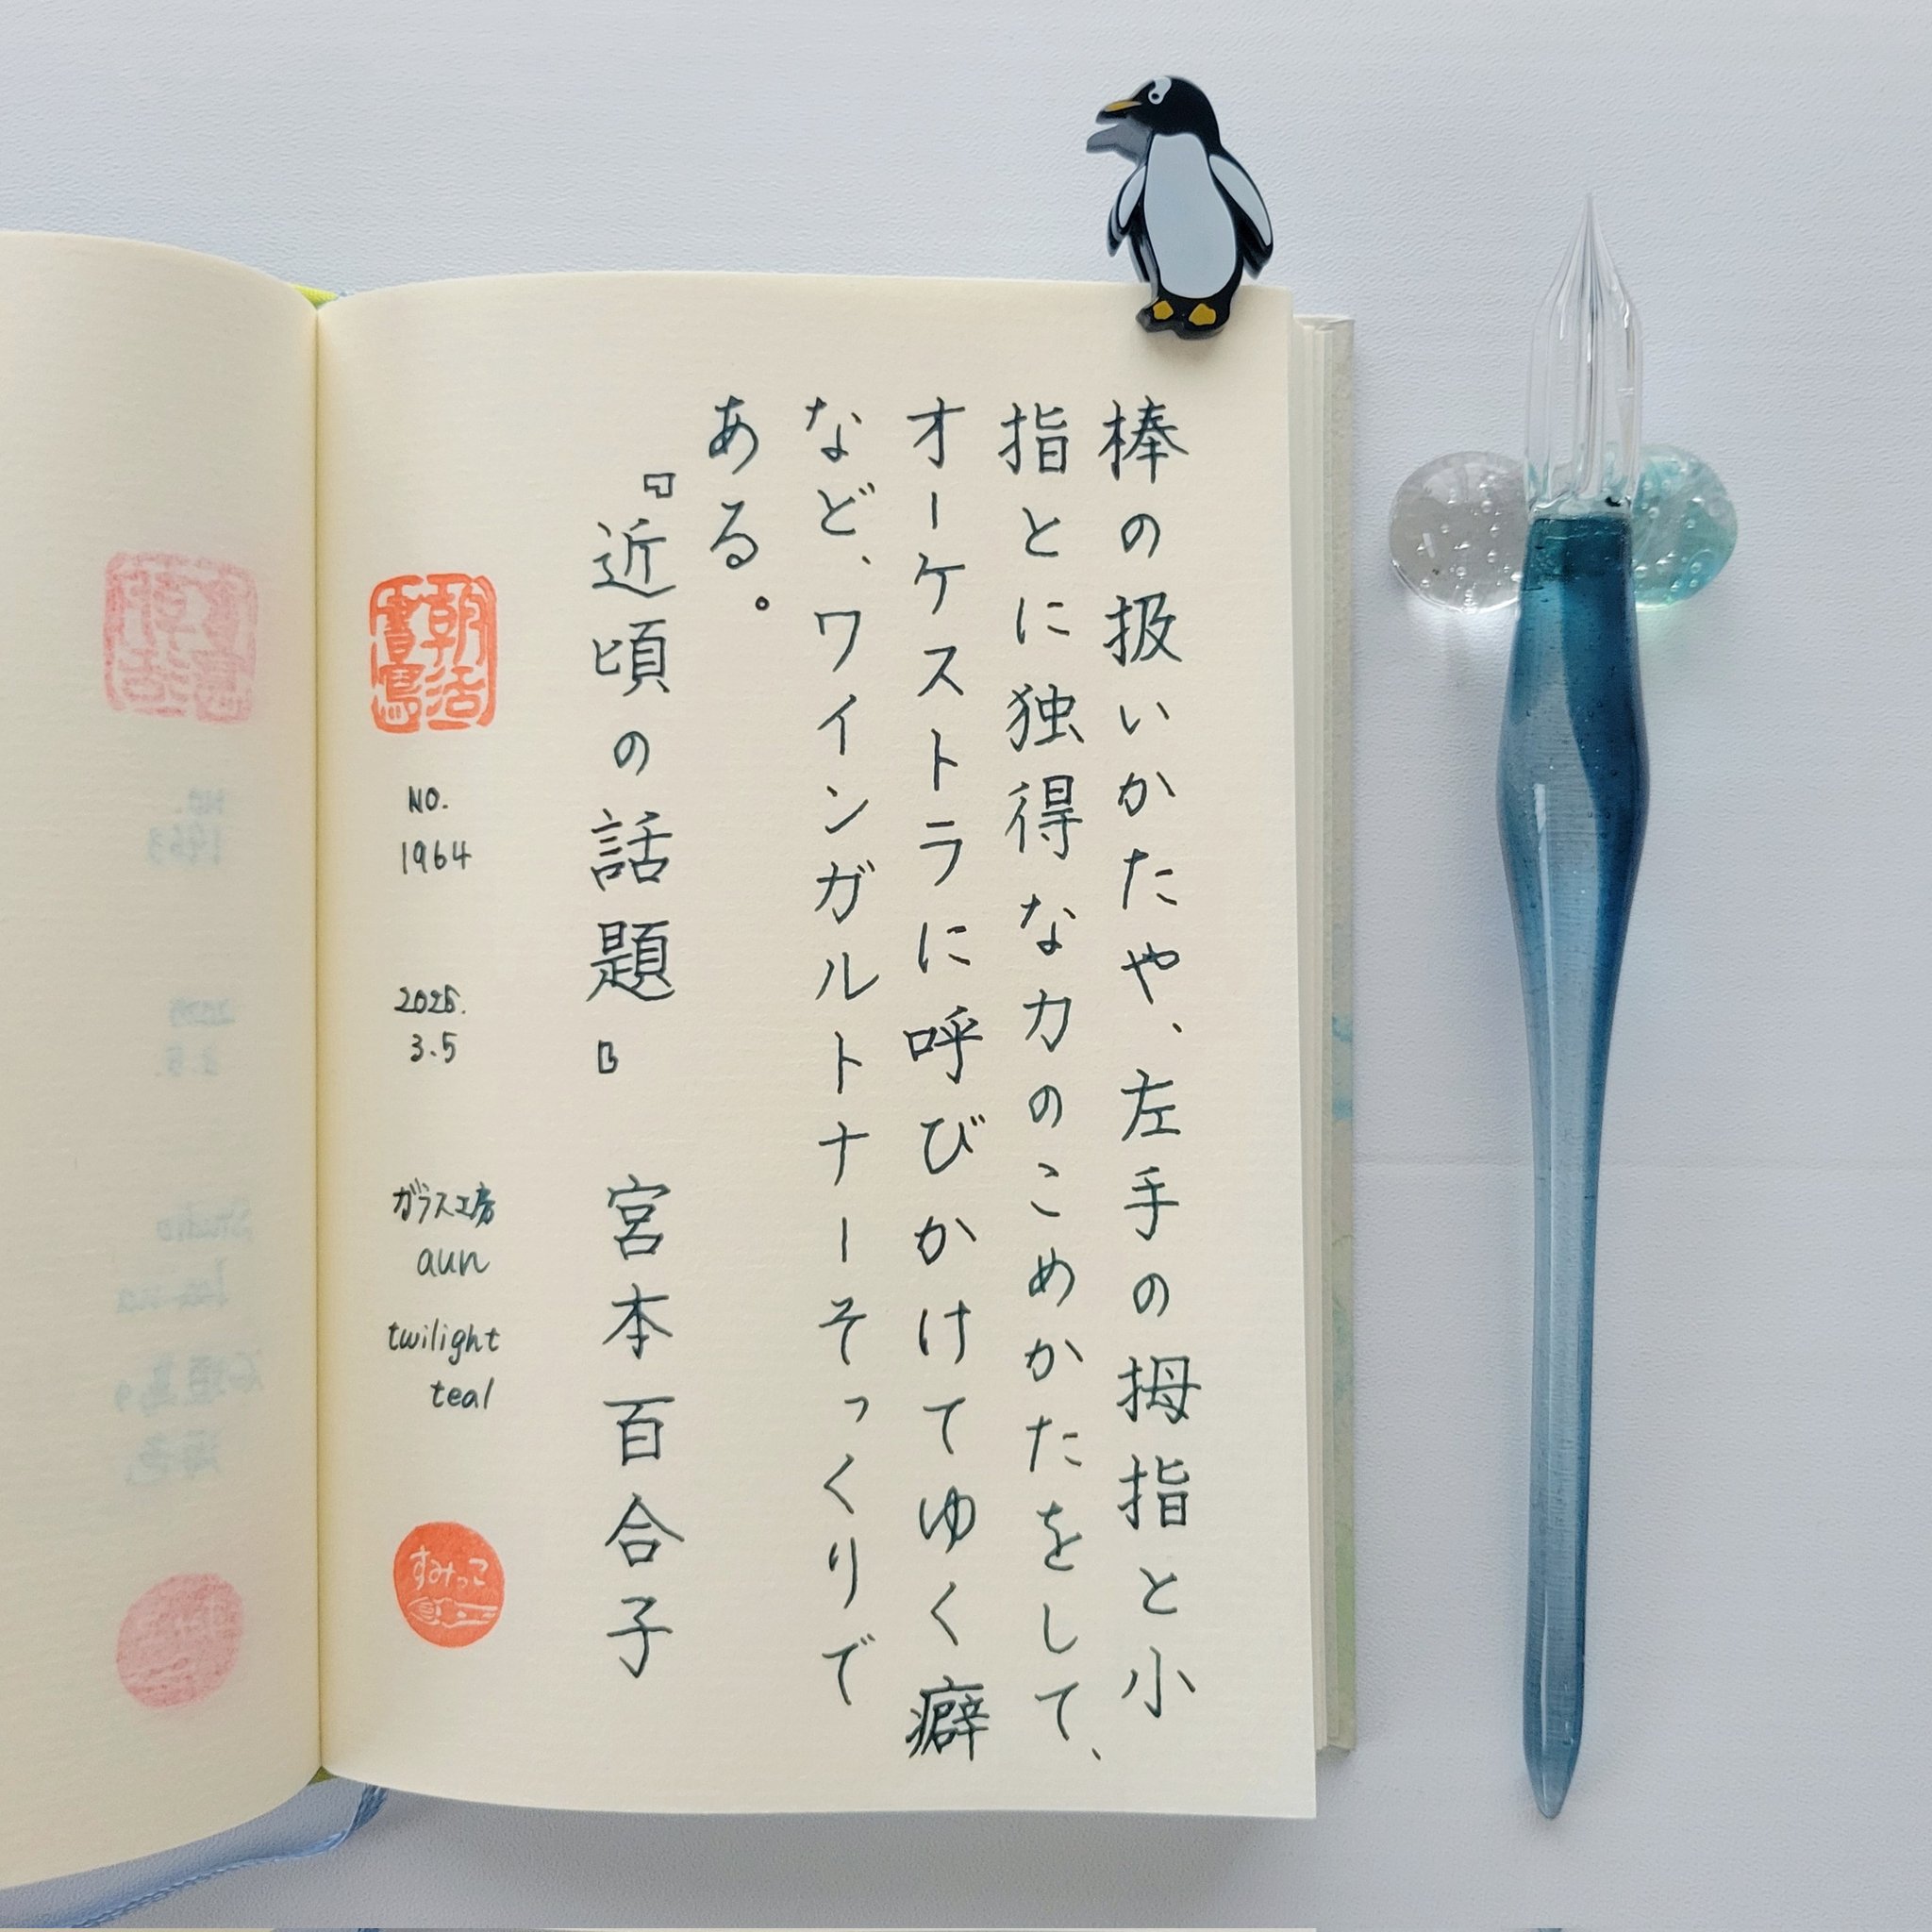 棒の扱いかたや、左手の拇指と小
指とに独得な力のこめかたをして、
オーケストラに呼びかけてゆく癖
など、ワインガルトナーそっくりで
ある。
『近頃の話題』 宮本百合子
朝活書寫
NO.
1964
2025.
3.5
ガラス工房
aun
twilight
teal
すみっこ